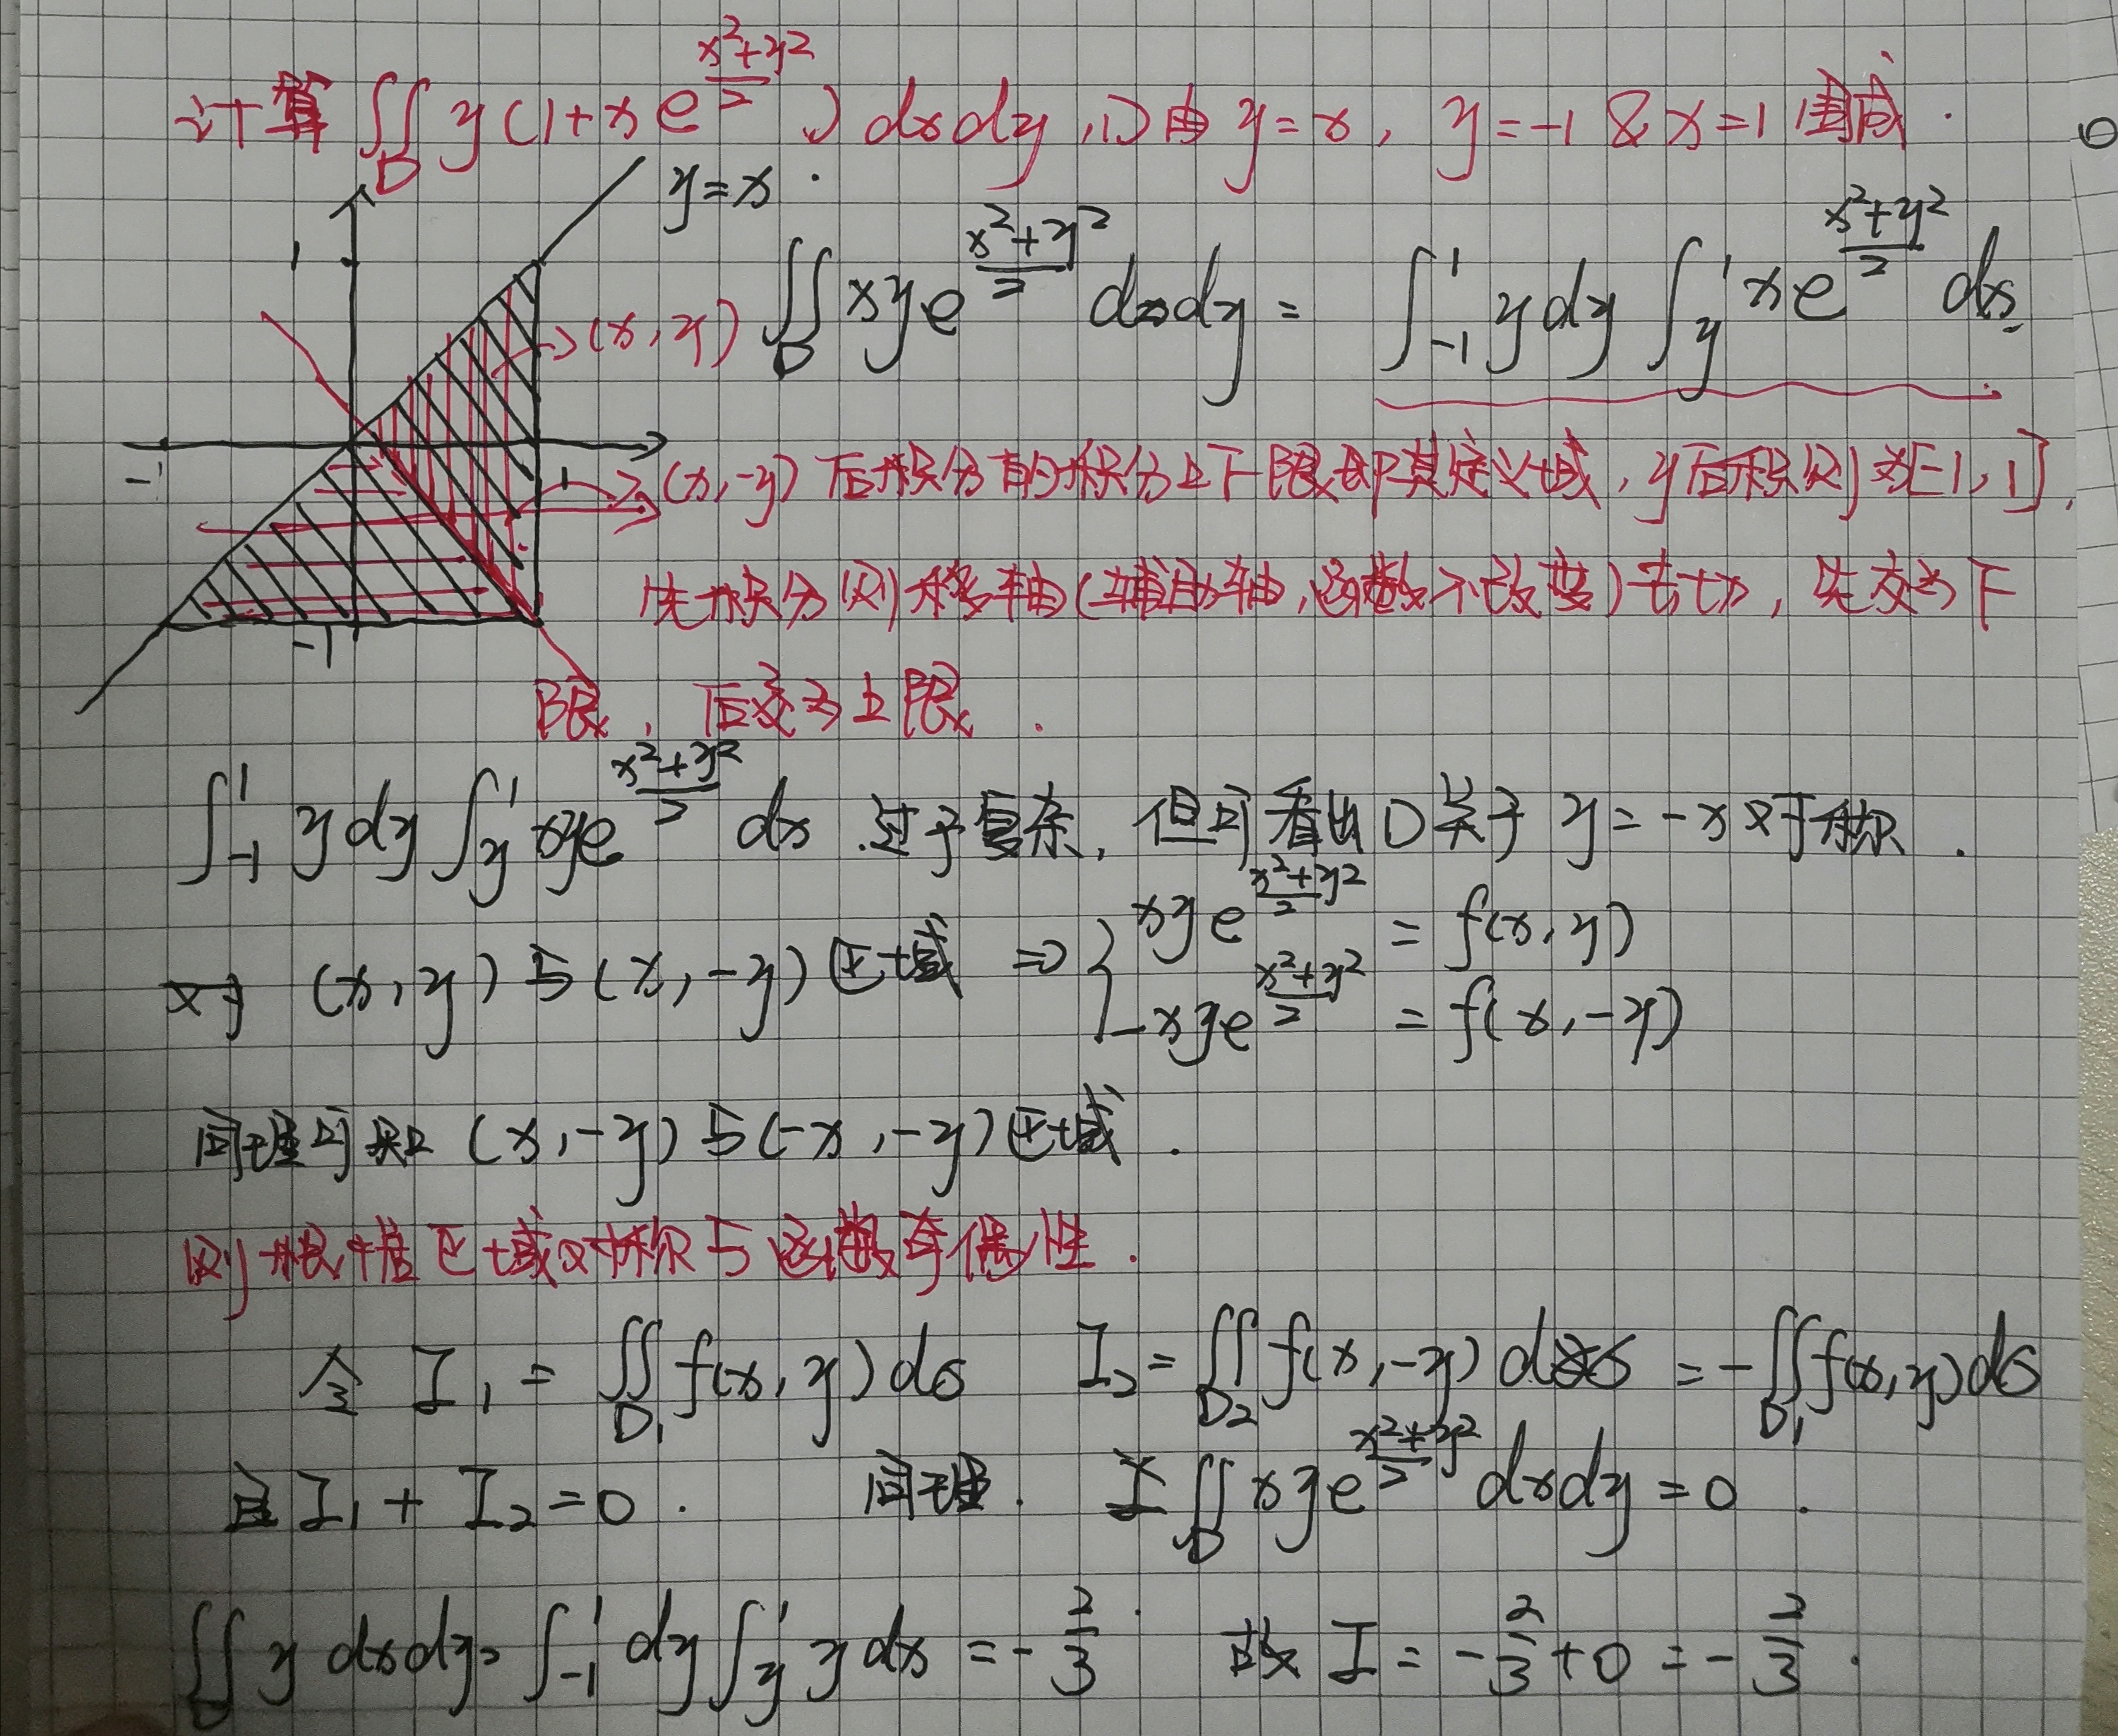 计算 ∬_D y(1+xe^{\frac{x²+y²}{2}}) dxdy, D由 y=x, y=-1 & x=1 围成.
y=x.
1
→(x,y)
∬_D xye^{\frac{x²+y²}{2}} dxdy = ∫_{-1}^{1} y dy ∫_y^1 xe^{\frac{x²+y²}{2}} dx.
-1
1
→(x,-y) 后积分的积分上下限即其定义域, y后积则为[-1,1],
先积分则移轴(辅助轴,函数不改变)去切, 先交为下
-1
限, 后交为上限.
∫_{-1}^{1} y dy ∫_y^1 xye^{\frac{x²+y²}{2}} dx .过于复杂, 但可看出D关于 y=-x 对称.
对于 (x,y)与(x,-y)区域 ⇒ { xye^{\frac{x²+y²}{2}} = f(x,y)
-xye^{\frac{x²+y²}{2}} = f(x,-y)
同理可知 (x,-y)与(-x,-y)区域.
则根据区域对称与函数奇偶性.
令 I₁ = ∬_{D₁} f(x,y)dσ I₂ = ∬_{D₂} f(x,-y) dσ = -∬_{D₁} f(x,y)dσ
且 I₁ + I₂ = 0. 同理. ∬_D xye^{\frac{x²+y²}{2}} dxdy = 0.
∬_D y dxdy = ∫_{-1}^{1} dy ∫_y^1 y dx = -\frac{2}{3}. 故 I = -\frac{2}{3}+0 = -\frac{2}{3}.